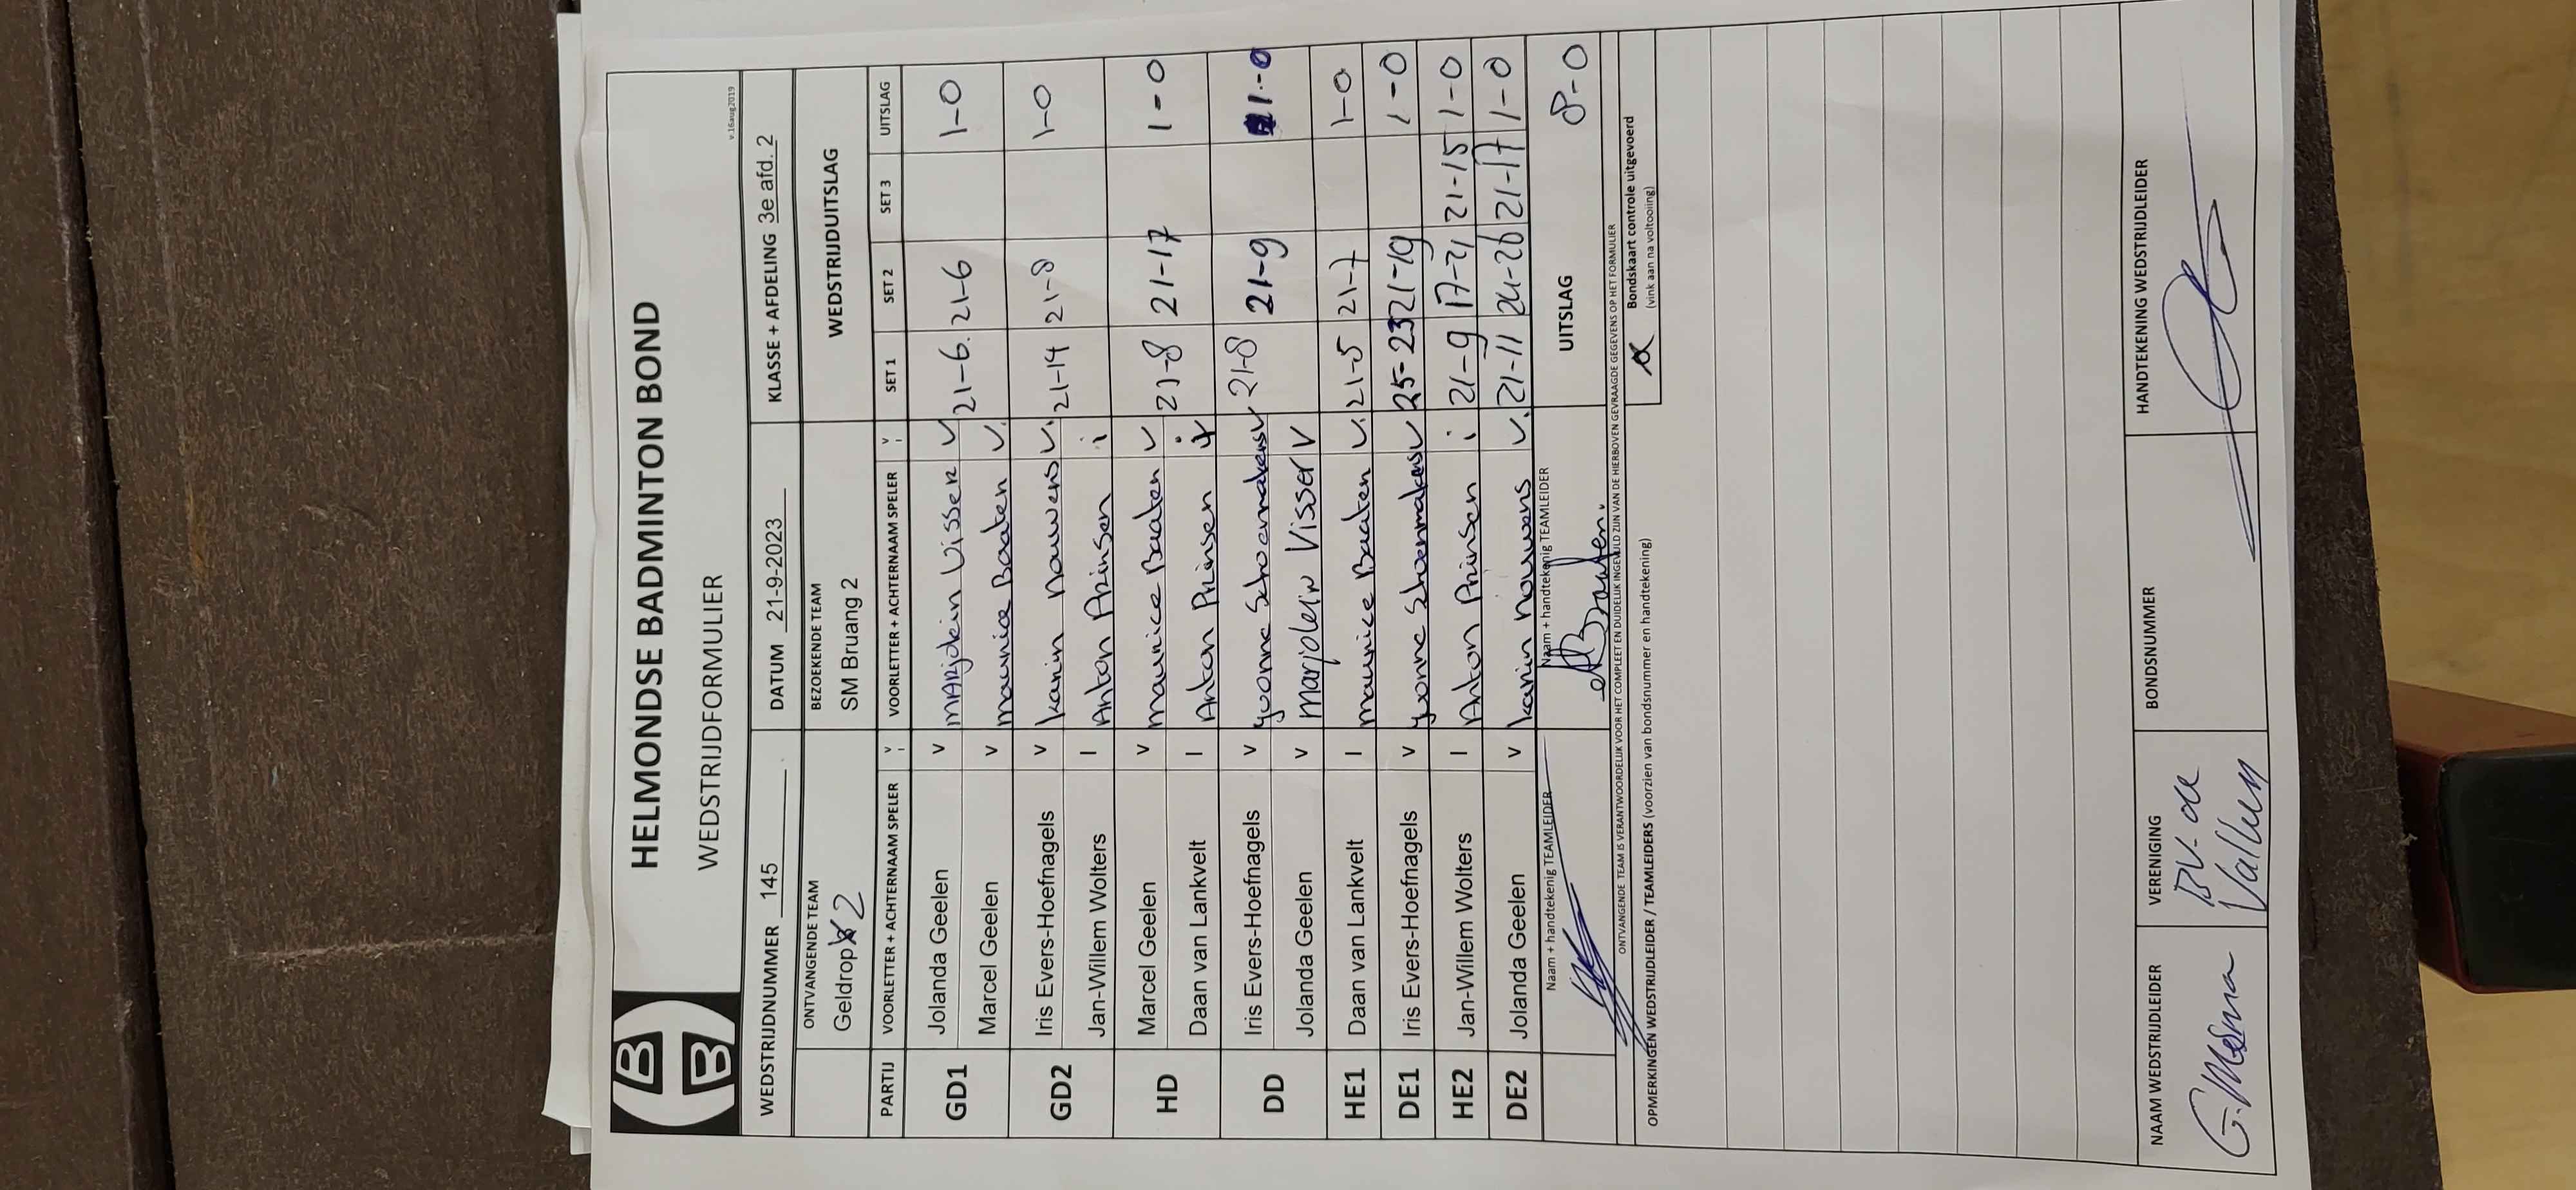 HELMONDSE BADMINTON BOND
WEDSTRIJDFORMULIER
v.16aug2019
WEDSTRIJDNUMMER 145 DATUM 21-9-2023 KLASSE + AFDELING 3e afd. 2
ONTVANGENDE TEAM BEZOEKENDE TEAM WEDSTRIJDUITSLAG
Geldrop 2 SM Bruang 2
PARTIJ VOORLETTER + ACHTERNAAM SPELER V I VOORLETTER + ACHTERNAAM SPELER V I SET 1 SET 2 SET 3 UITSLAG
GD1 Jolanda Geelen v MARjolein Visser V 21-6. 21-6 1-0
Marcel Geelen v maurice Baaten V.
GD2 Iris Evers-Hoefnagels v karin nouwens V. 21-14 21-8 1-0
Jan-Willem Wolters I Anton Prinsen i
HD Marcel Geelen v maurice Baaten V 21-8 21-17 1-0
Daan van Lankvelt I Anton Prinsen i
DD Iris Evers-Hoefnagels v yvonne Schoenmakers V 21-8 21-9 1-0
Jolanda Geelen v Marjolein Visser V
HE1 Daan van Lankvelt I maurice Baaten V. 21-5 21-7 1-0
DE1 Iris Evers-Hoefnagels v yvonne Schoenmakers V 25-23 21-19 1-0
HE2 Jan-Willem Wolters I Anton Prinsen i 21-9 17-21 21-15 1-0
DE2 Jolanda Geelen v karin nouwens V. 21-11 24-26 21-17 1-0
Naam + handtekenig TEAMLEIDER Naam + handtekenig TEAMLEIDER UITSLAG 8-0
Baaten.
ONTVANGENDE TEAM IS VERANTWOORDELIJK VOOR HET COMPLEET EN DUIDELIJK INGEVULD ZIJN VAN DE HIERBOVEN GEVRAAGDE GEGEVENS OP HET FORMULIER
OPMERKINGEN WEDSTRIJDLEIDER / TEAMLEIDERS (voorzien van bondsnummer en handtekening) Bondskaart controle uitgevoerd
(vink aan na voltooiing)
NAAM WEDSTRIJDLEIDER VERENIGING BONDSNUMMER HANDTEKENING WEDSTRIJDLEIDER
G. Mesma BV-de
Vallum